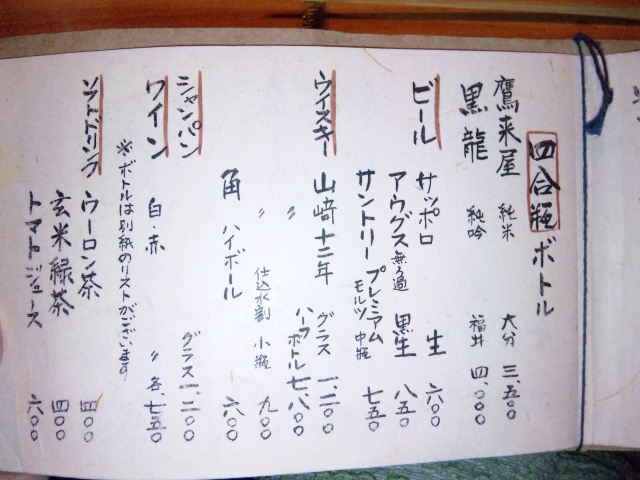 四合瓶ボトル
鷹来屋 純米 大分 三、五〇〇
黒龍 純吟 福井 四、〇〇〇
ビール サッポロ 生 六〇〇
アウグス無ろ過 黒生 八五〇
サントリー プレミアムモルツ 中瓶 七五〇
ウイスキー 山崎十二年 グラス 一、二〇〇
〃 ハーフボトル 七、八〇〇
〃 仕込水割 小瓶 九〇〇
角 ハイボール 六〇〇
シャンパン グラス 一、二〇〇
ワイン 白・赤 〃 各、七五〇
※ボトルは別紙のリストがございます
ソフトドリンク ウーロン茶 四〇〇
玄米緑茶 四〇〇
トマトジュース 六〇〇